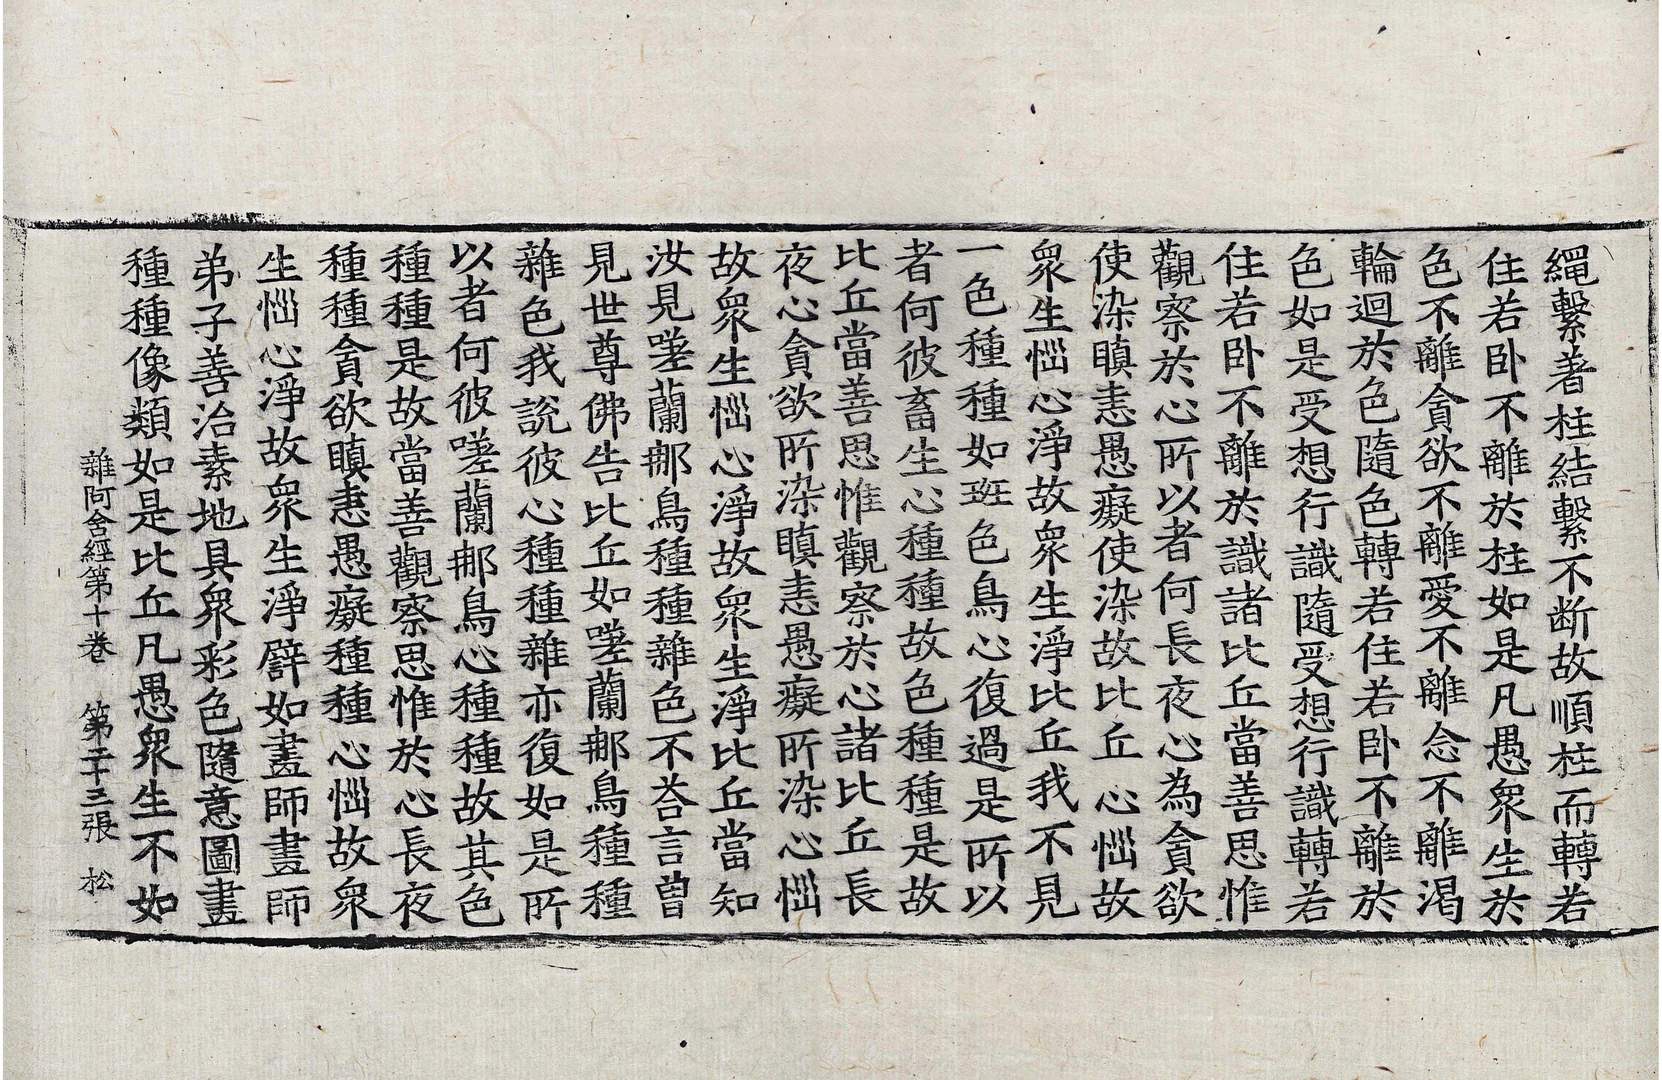 繩繫著柱結繫不断故順柱而轉若
住若卧不離於柱如是凡愚衆生於
色不離貪欲不離愛不離念不離渴
輪迴於色隨色轉若住若卧不離於
色如是受想行識隨受想行識轉若
住若卧不離於識諸比丘當善思惟
觀察於心所以者何長夜心為貪欲
使染瞋恚愚癡使染故比丘心惱故
衆生惱心淨故衆生淨比丘我不見
一色種種如斑色鳥心復過是所以
者何彼畜生心種種故色種種是故
比丘當善思惟觀察於心諸比丘長
夜心貪欲所染瞋恚愚癡所染心惱
故衆生惱心淨故衆生淨比丘當知
汝見嗟蘭那鳥種種雜色不荅言曾
見世尊佛告比丘如嗟蘭那鳥種種
雜色我說彼心種種雜亦復如是所
以者何彼嗟蘭那鳥心種種故其色
種種是故當善觀察思惟於心長夜
種種貪欲瞋恚愚癡種種心惱故衆
生惱心淨故衆生淨譬如畫師畫師
弟子善治素地具衆彩色隨意圖畫
種種像類如是比丘凡愚衆生不如
雜阿含經第十卷 第二十三張 松